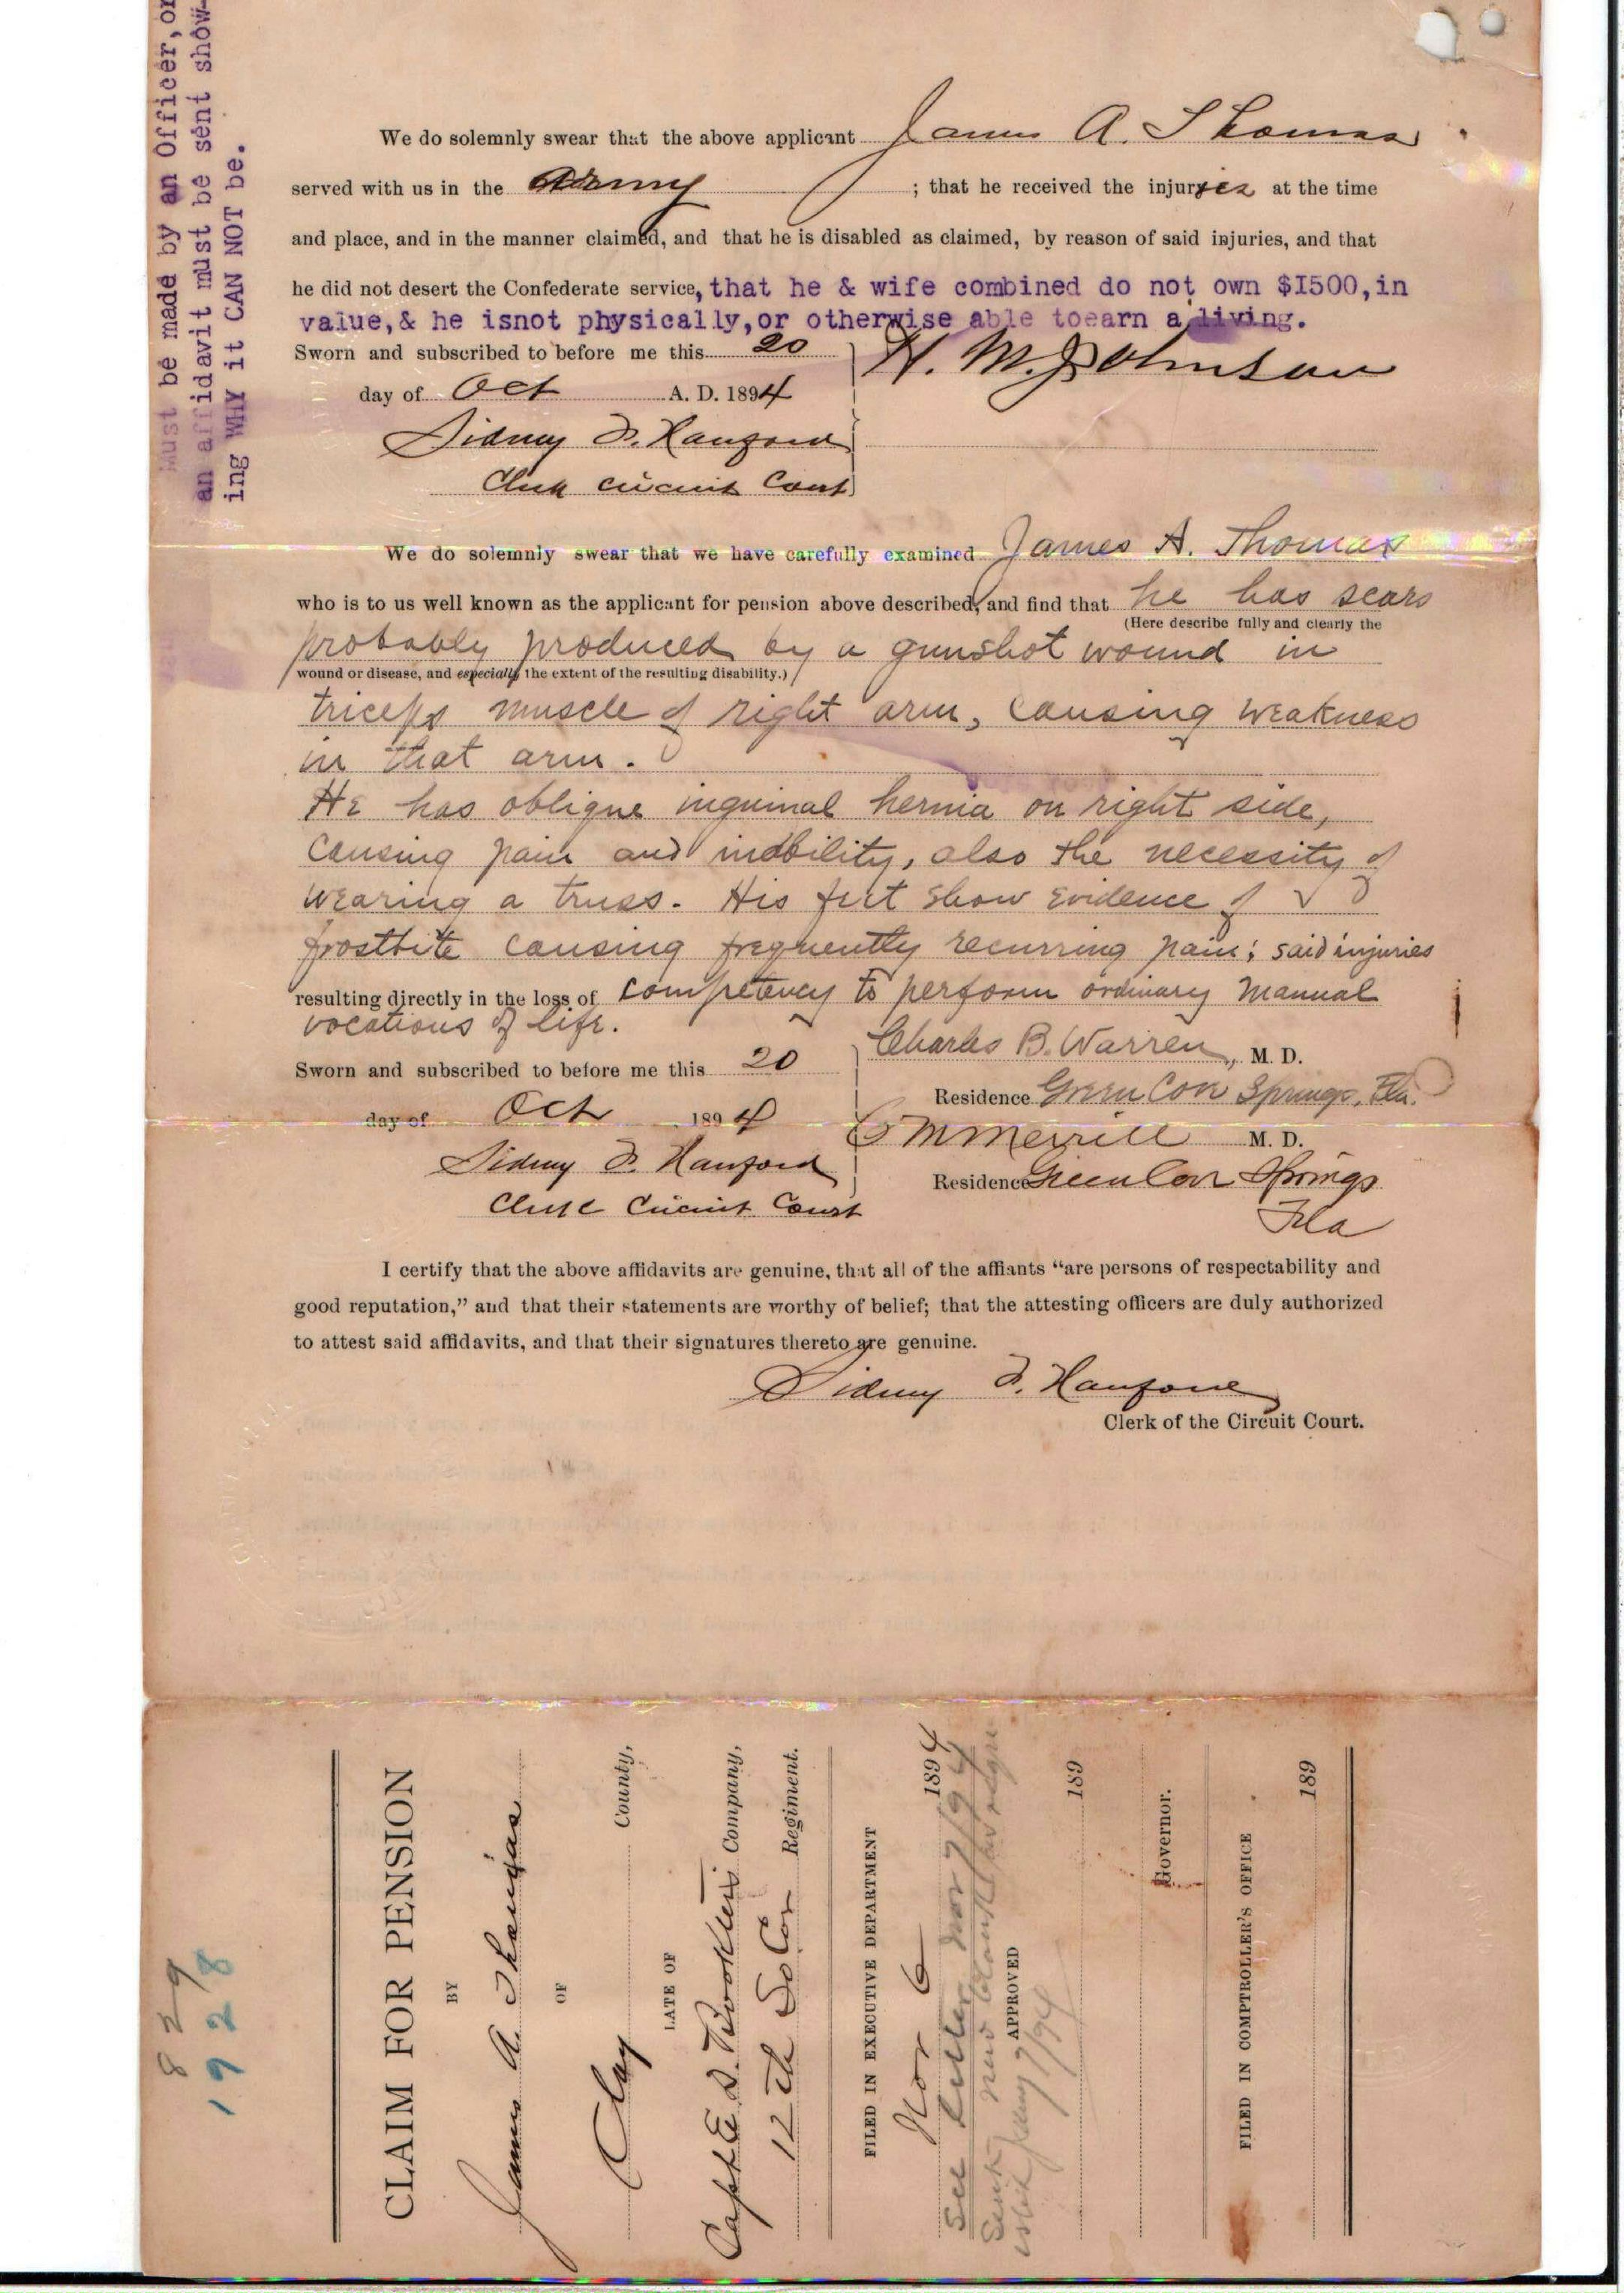 Must be made by an Officer, or
an affidavit must be sent show-
ing WHY it CAN NOT be.
We do solemnly swear that the above applicant James A. Thomas
served with us in the Army ; that he received the injuries at the time
and place, and in the manner claimed, and that he is disabled as claimed, by reason of said injuries, and that
he did not desert the Confederate service, that he & wife combined do not own $1500, in
value, & he isnot physically, or otherwise able toearn a living.
Sworn and subscribed to before me this 20
H. M. Johnson
day of Oct A. D. 1894
Sidney F. Hanford
Clerk Circuit Court
We do solemnly swear that we have carefully examined James A. Thomas
who is to us well known as the applicant for pension above described, and find that he has scars
(Here describe fully and clearly the
probably produced by a gunshot wound in
wound or disease, and especially the extent of the resulting disability.)
triceps muscle of right arm, causing weakness
in that arm.
He has oblique inguinal hernia on right side,
causing pain and inability, also the necessity of
wearing a truss. His feet show evidence of
frostbite causing frequently recurring pain; said injuries
resulting directly in the loss of competency to perform ordinary manual
vocations of life.
Charles B. Warren, M. D.
Sworn and subscribed to before me this 20
Residence Green Cove Springs, Fla.
day of Oct 1894
C M Merrill M. D.
Sidney F. Hanford
Residence Green Cove Springs
Clerk Circuit Court
Fla
I certify that the above affidavits are genuine, that all of the affiants "are persons of respectability and
good reputation," and that their statements are worthy of belief; that the attesting officers are duly authorized
to attest said affidavits, and that their signatures thereto are genuine.
Sidney F. Hanford
Clerk of the Circuit Court.
829
1928
CLAIM FOR PENSION
BY
James A Thomas
OF
Clay County,
LATE OF
Capt E. D. Company,
12th So Car Regiment.
FILED IN EXECUTIVE DEPARTMENT
Nov 6 1894
See letter Nov 7/94
Sent new blank
APPROVED
7/94
189
Governor.
FILED IN COMPTROLLER'S OFFICE
189